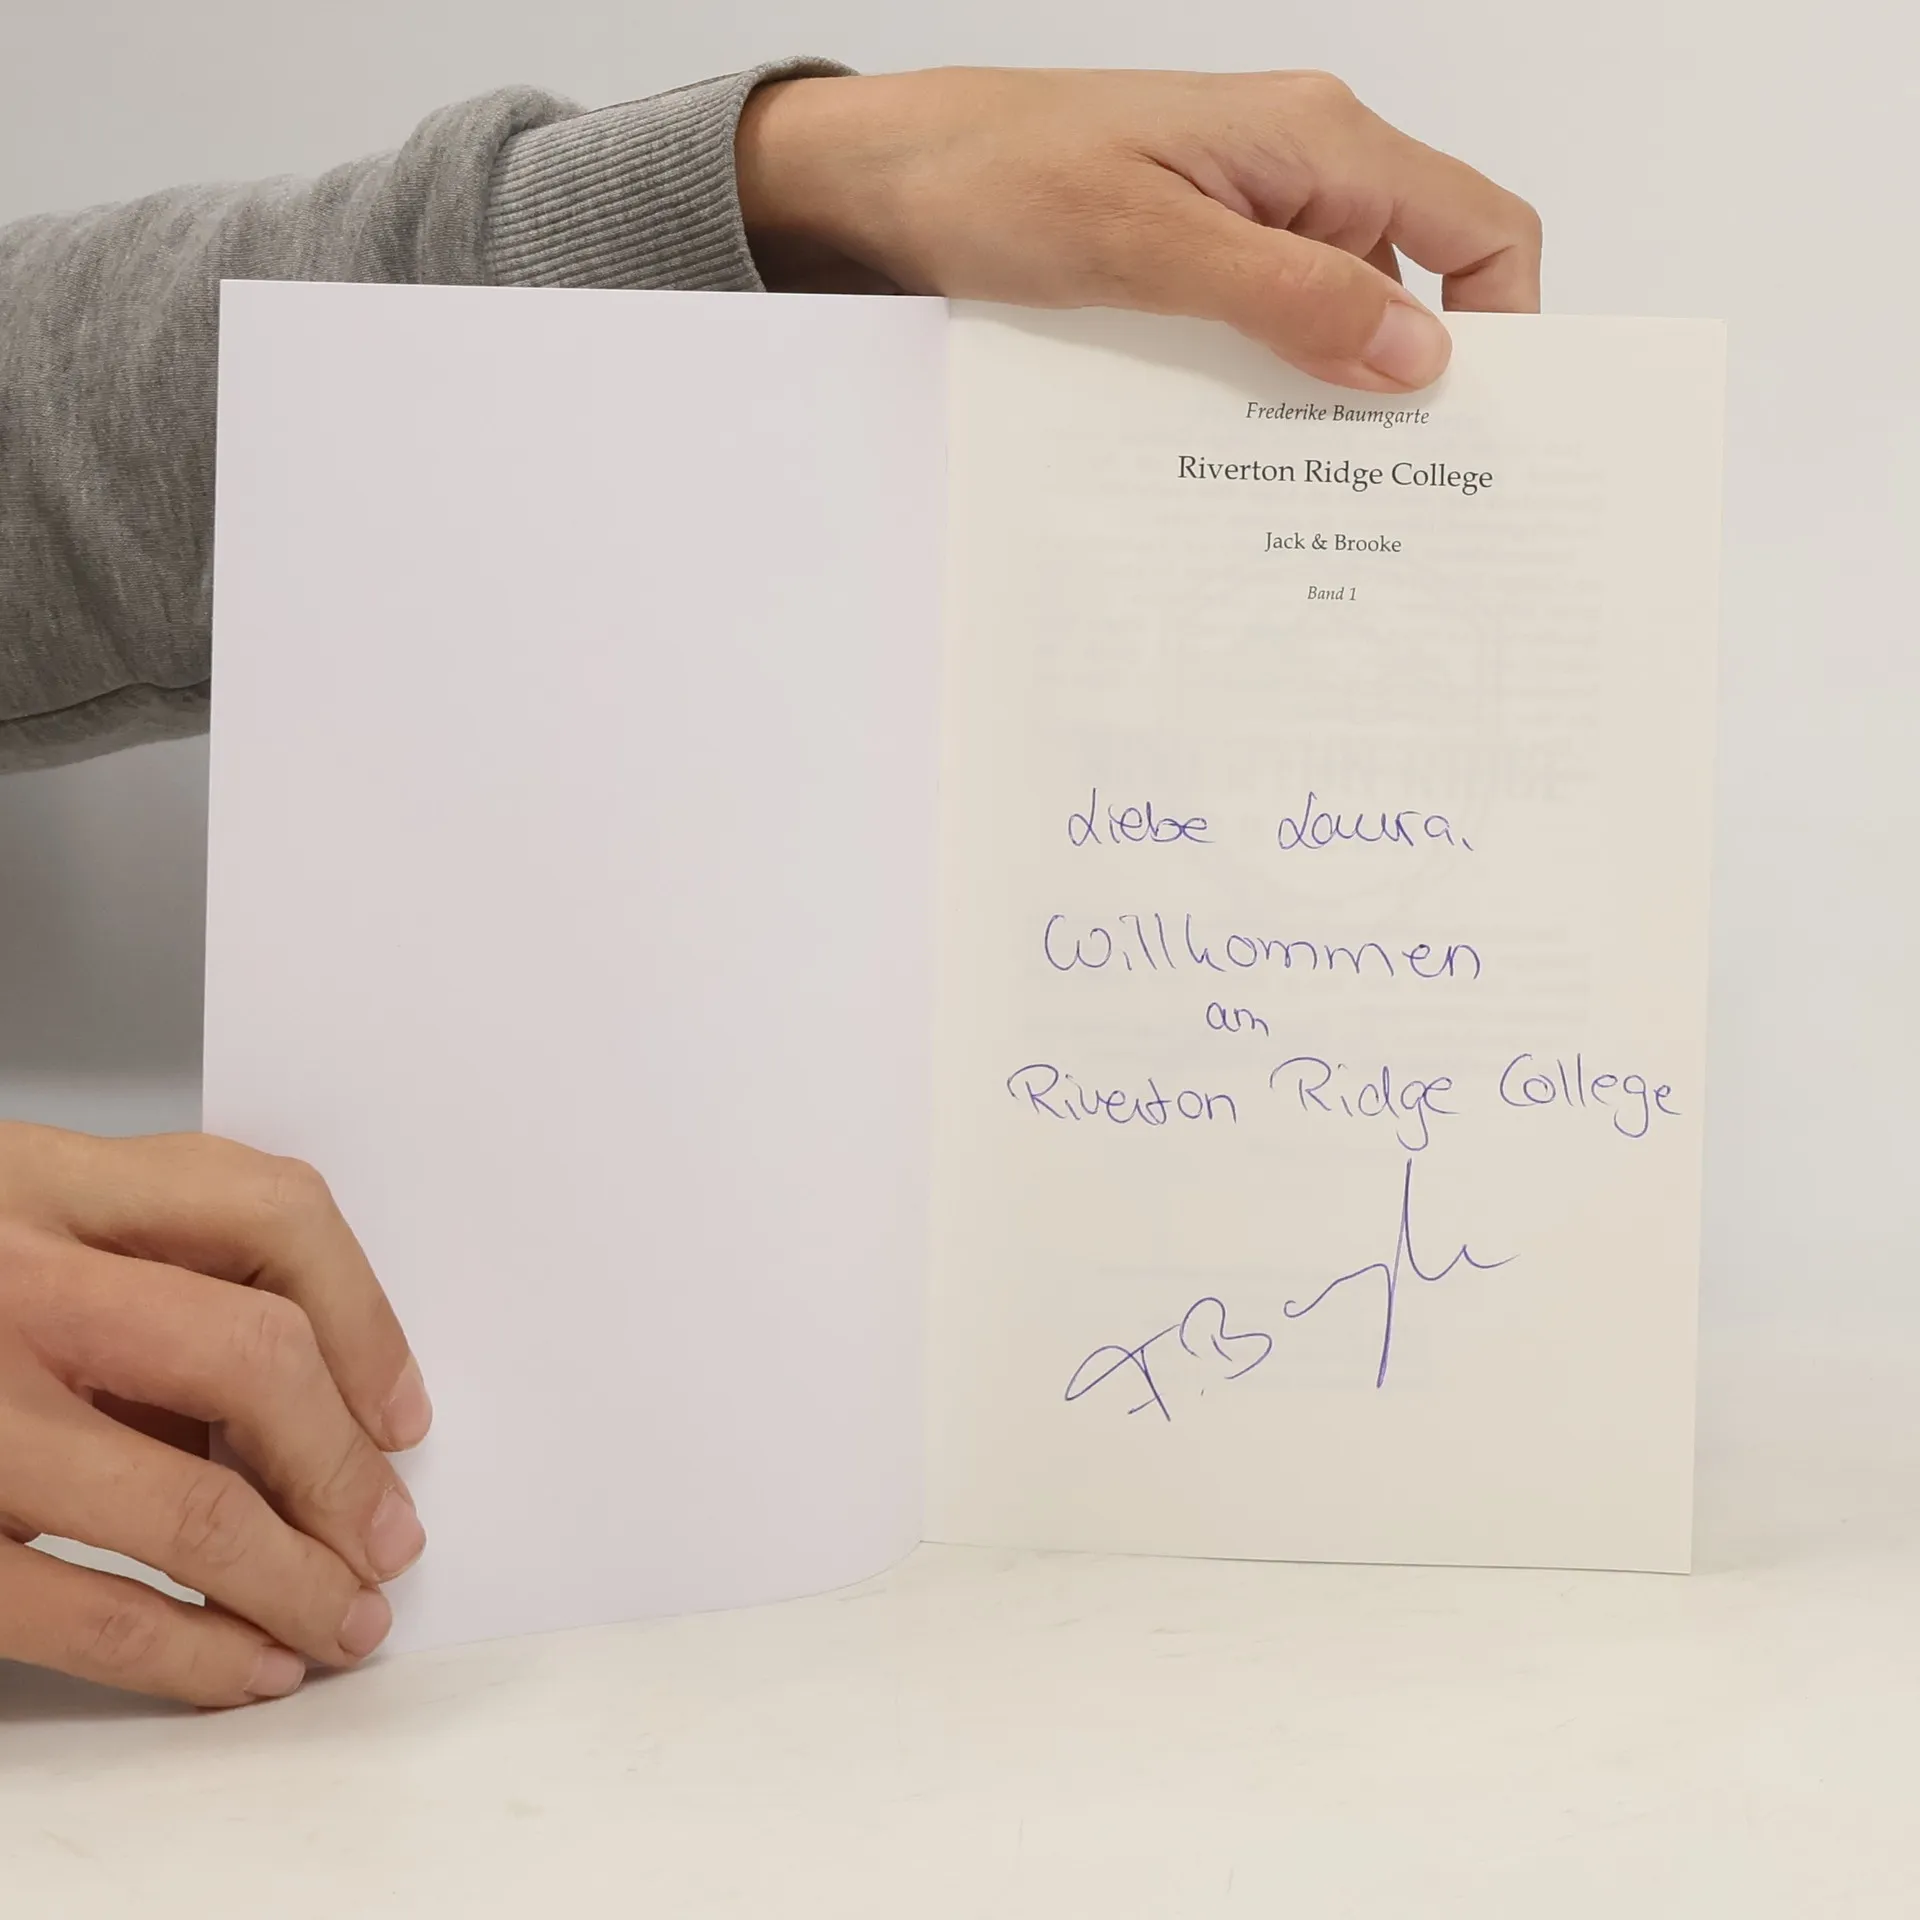 Frederike Baumgarte
Riverton Ridge College
Jack & Brooke
Band 1
Liebe Laura,
Willkommen
am
Riverton Ridge College
F. B